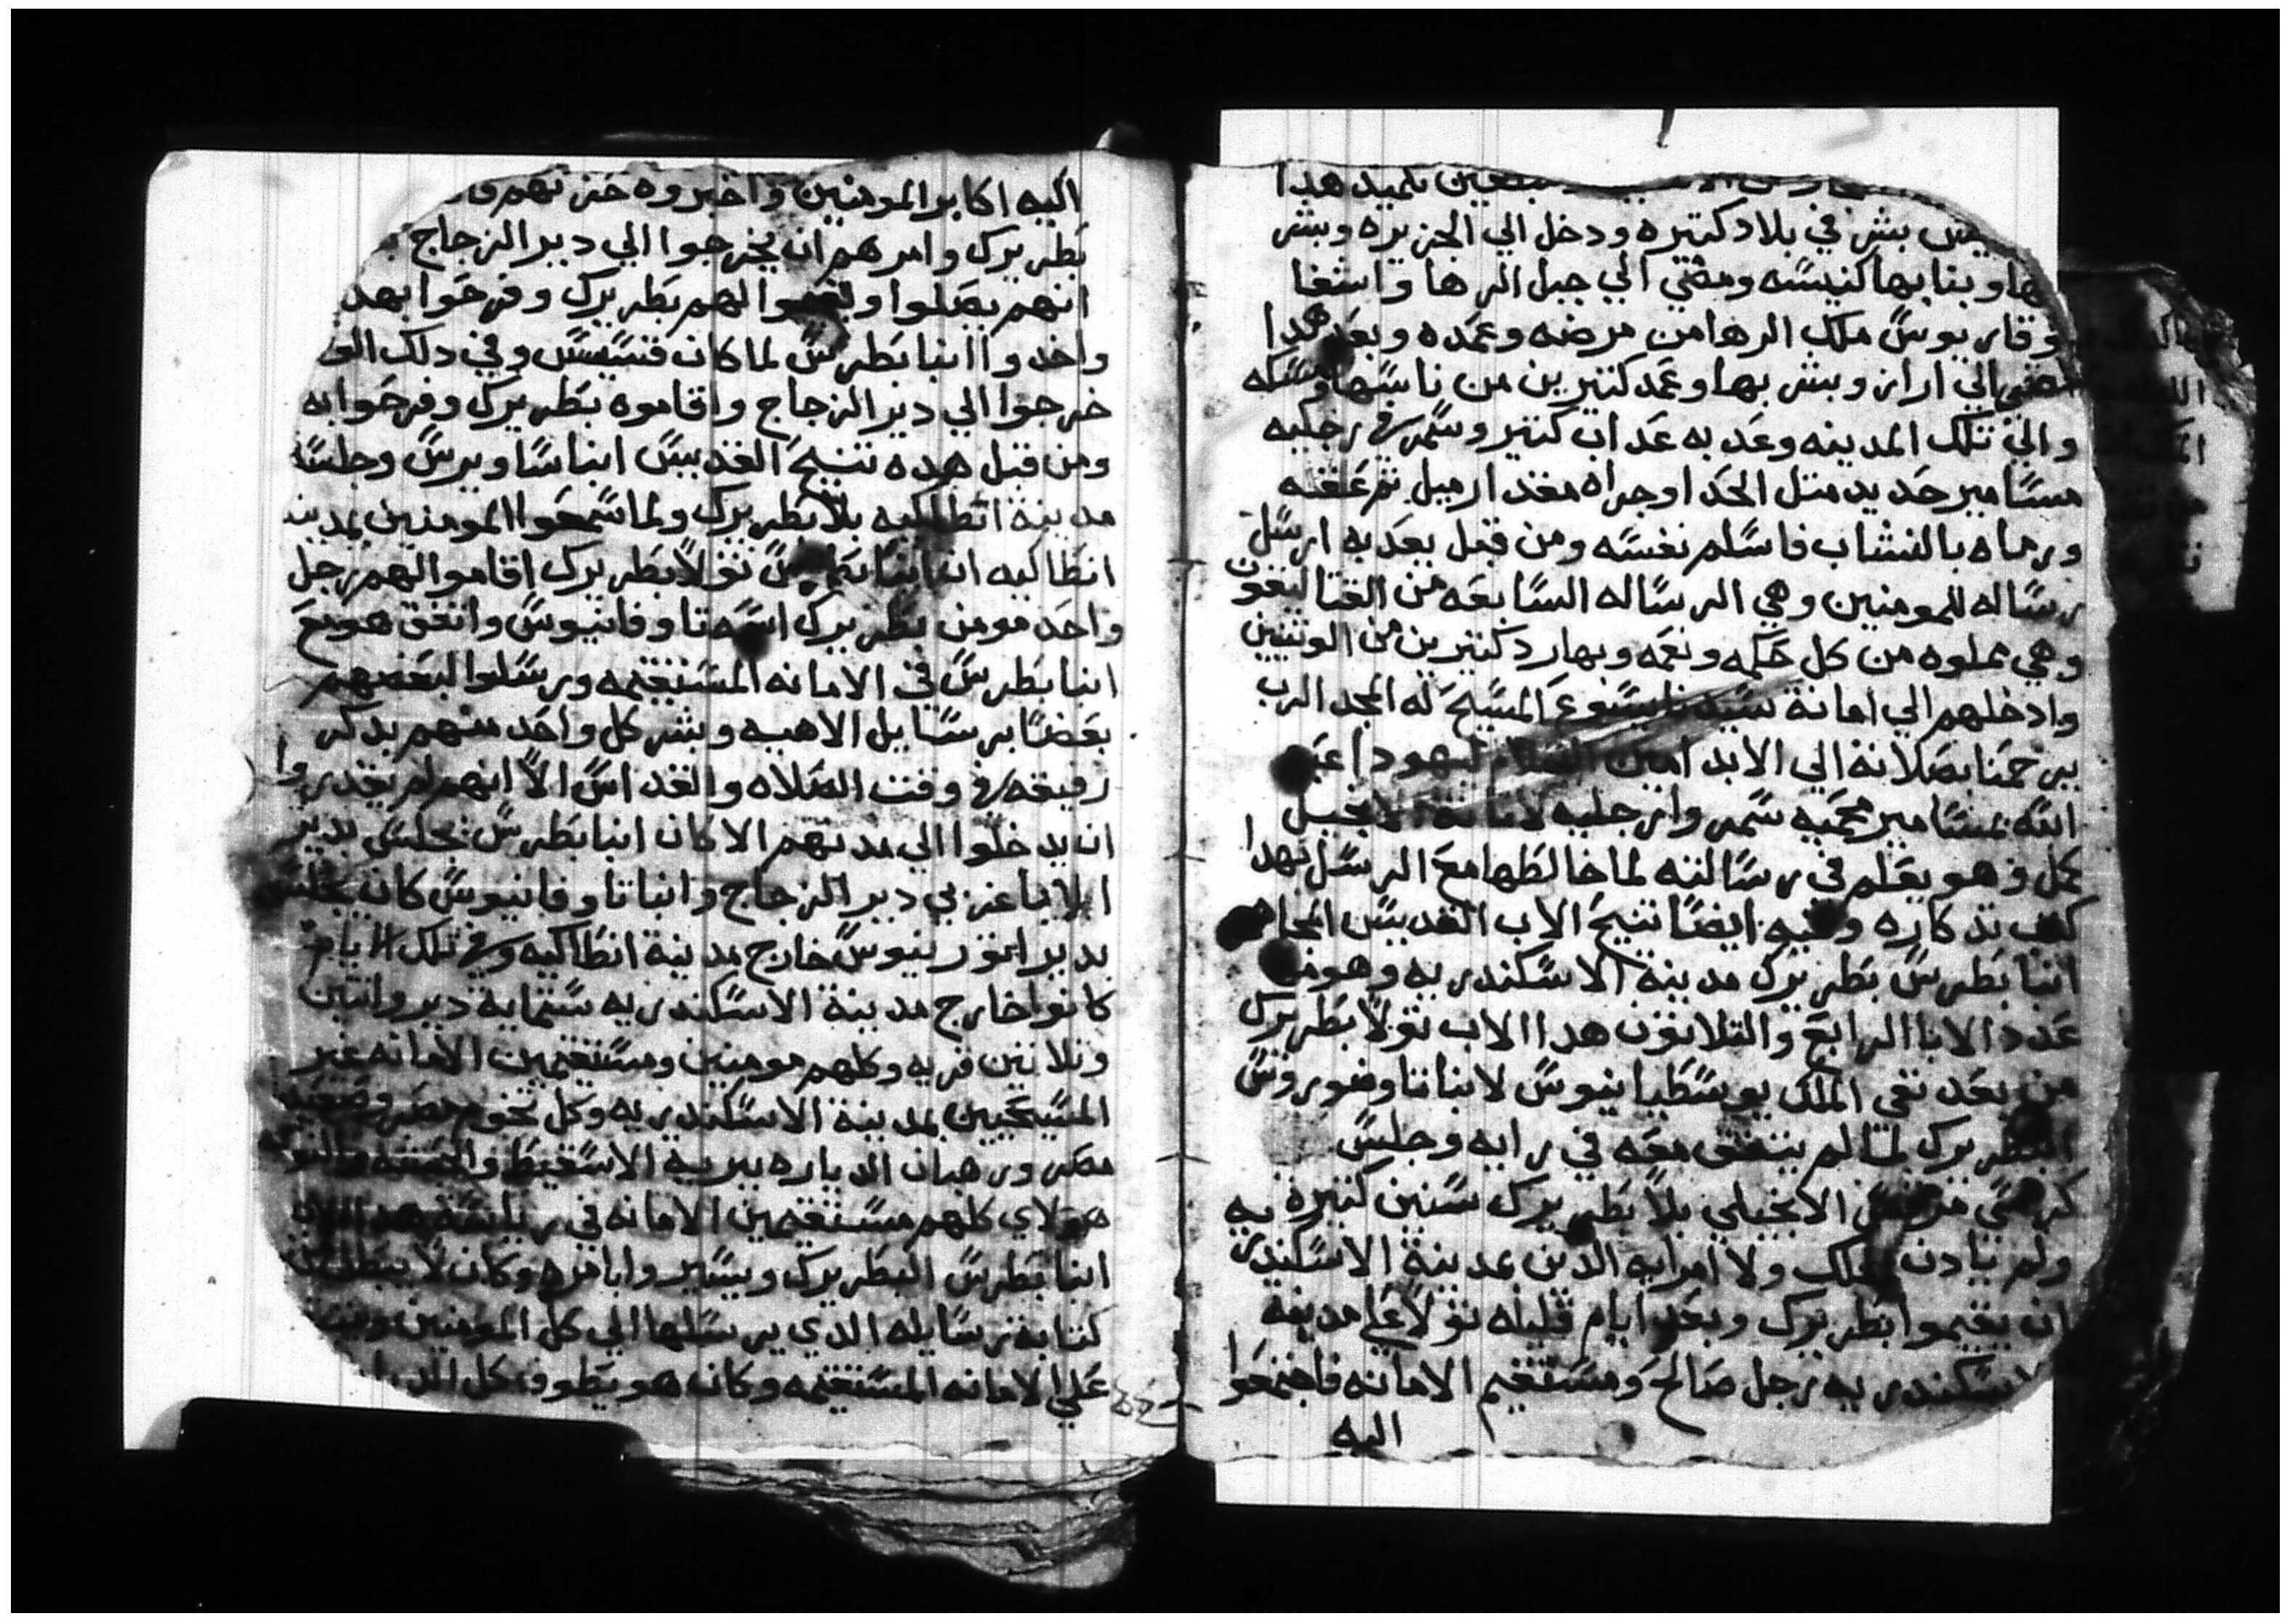 تلميد هدا
بشر في بلاد كتيره ودخل الي الجزيره وبشر
بها وبنا بها كنيسه ومضي الي جبل الرها واشفا
وقاريوس ملك الرها من مرضه وعمده وبعد هدا
مضي الي اراز وبشر بها وعمد كتيرين من ناسها ومسكه
والي تلك المدينه وعدبه عداب كتير وسمر في رجليه
مسامير حديد متل الحدا وجراه مقدار ميل تم علقه
ورماه بالنشاب فاسلم نفسه ومن قبل يعدبه ارسل
رساله للمومنين وهي الرساله السابعه من القتاليقون
وهي مملوه من كل حكمه ونعمه وبها رد كتيرين من الوتنيين
وادخلهم الي امانة سيدنا يسوع المسيح له المجد الرب
يرحمنا بصلاته الي الابد امين السلام ليهودا عبد
الله بمسامير محميه سمر وا رجليه لامانة الانجيل
كمل وهو يعلم في رسالته لما خالطها مع الرسل بهدا
كمل تدكاره وفيه ايضا تنيح الاب القديس المجاهد
انبا بطرس بطريرك مدينة الاسكندريه وهو من
عدد الابا الرابع والتلاتون هدا الاب تولا بطريرك
من بعد نفي الملك يوسطيانيوس لانبا تاوضوروس
البطريرك لما لم يتفق معه في رايه وجلس
كرسي مرقس الانجيلي بلا بطريرك سنين كتيره
ولم يادن الملك ولا امرايه الدين بمدينة الاسكندريه
ان يقيموا بطريرك وبعد ايام قليله تولا علي مدينة
الاسكندريه رجل صالح ومستقيم الامانه فاجتمعوا
اليه
اليه اكابر المومنين واخبروه حزنهم
بطريرك وامرهم ان يخرجوا الي دير الزجاج
انهم يصلوا ويقيموا لهم بطريرك وفرحوا بهدا
واخدوا انبا بطرس لما كان قسيس وفي دلك الوقت
خرجوا الي دير الزجاج واقاموه بطريرك وفرحوا به
ومن قبل هده تنيح القديس انبا ساويرس وجلست
مدينة انطاكيه بلا بطريرك ولما سمعوا المومنين بمدينة
انطاكيه ان انبا بطرس تولا بطريرك اقاموا لهم رجل
واحد مومن بطريرك اسمه تاوفانيوس واتفق هو مع
انبا بطرس في الامانه المستقيمه ورسلوا لبعضهم
بعضا برسايل الاهيه وبشر كل واحد منهم بدكر
رفيقه في وقت الصلاه والقداس الا انهم لم يقدروا
ان يدخلوا الي مدنهم الا كان انبا بطرس يجلس بدير
ابلانا غربي دير الزجاج وانبا تاوفانيوس كان يجلس
بدير افورنيوس خارج مدينة انطاكيه وفي تلك الايام
كانوا خارج مدينة الاسكندريه ستماية دير واتنين
وتلاتين قريه وكلهم مومنين ومستقيمين الامانه غير
المسيحيين بمدينة الاسكندريه وكل تخوم مصر وصعيد
مصر ورهبان الدياره ببرية الاسقيط والحبشه والنوبه
هولاي كلهم مستقيمين الامانه في رياسة هدا الاب
انبا بطرس البطريرك ويسير وايامره وكان لا يبطل من
كتابة رسايله الدي يرسلها الي كل المومنين
علي الامانه المستقيمه وكان هو يطوف كل